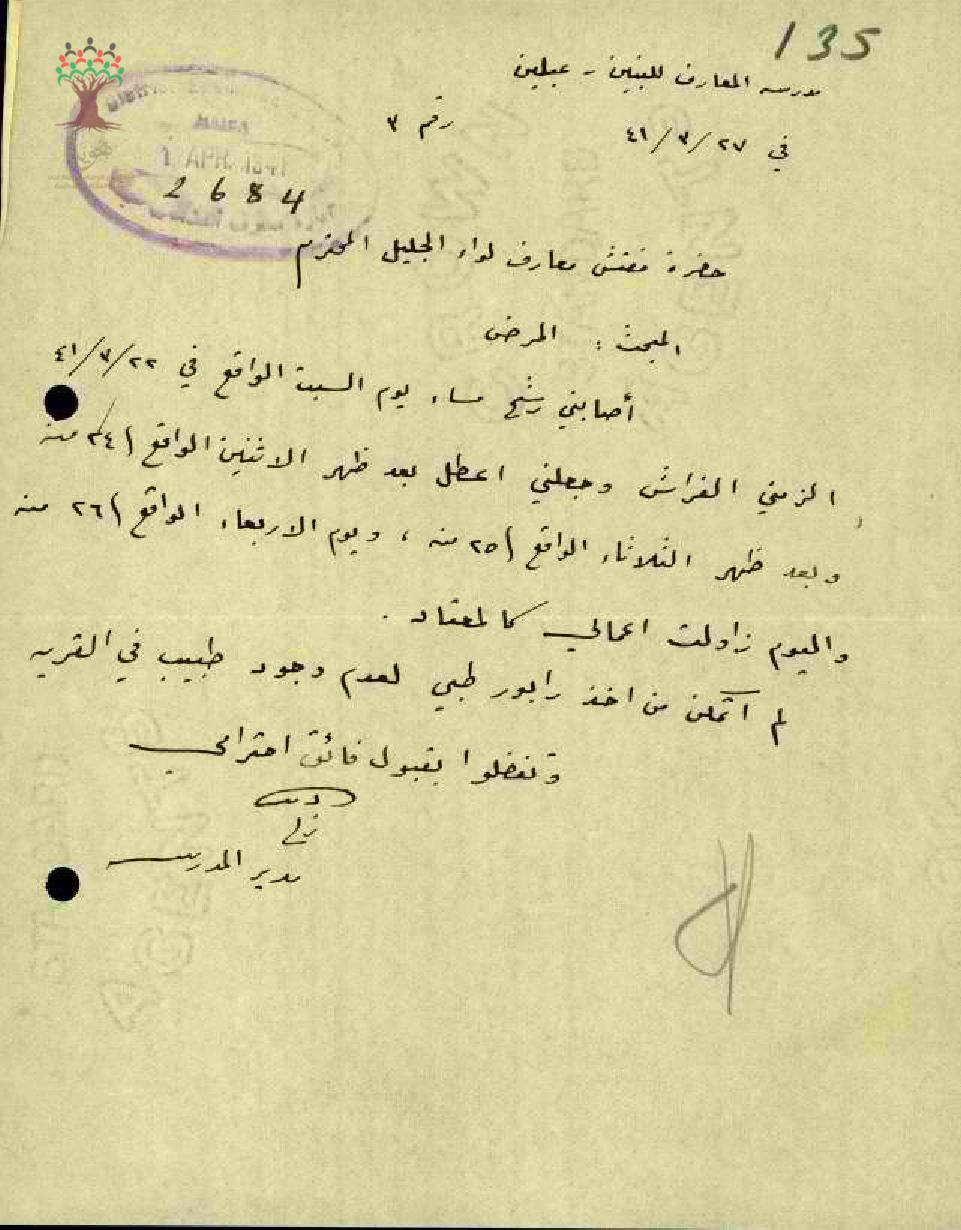 135
مدرسة المعارف للبنين - عبلين
في ٢٧/٣/٤١ رقم ٣
1 APR. 1941
2684
حضرة مفتش معارف لواء الجليل المحترم
المبحث : المرض
أصابني رشح مساء يوم السبت الواقع في ٢٢/٣/٤١
الزمني الفراش وجعلني اعطل بعد ظهر الاثنين الواقع ٢٤ منه
وبعد ظهر الثلاثاء الواقع ٢٥ منه ، ويوم الاربعاء الواقع ٢٦ منه
واليوم زاولت اعمالي كالمعتاد .
لم اتمكن من اخذ رابور طبي لعدم وجود طبيب في القريه
وتفضلوا بقبول فائق احترامي
مدير المدرسه